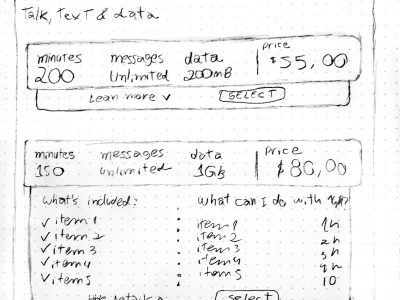 Talk, Text & data
minutes messages data Price
200 Unlimited 200MB $55,00
Learn more SELECT
minutes messages data Price
150 unlimited 1Gb $80,00
what's included: what can I do with
✓ item 1 item 1 1h
✓ item 2 item 2 2h
✓ item 3 item 3 3h
✓ item 4 item 4
✓ item 5 item 5 10
select